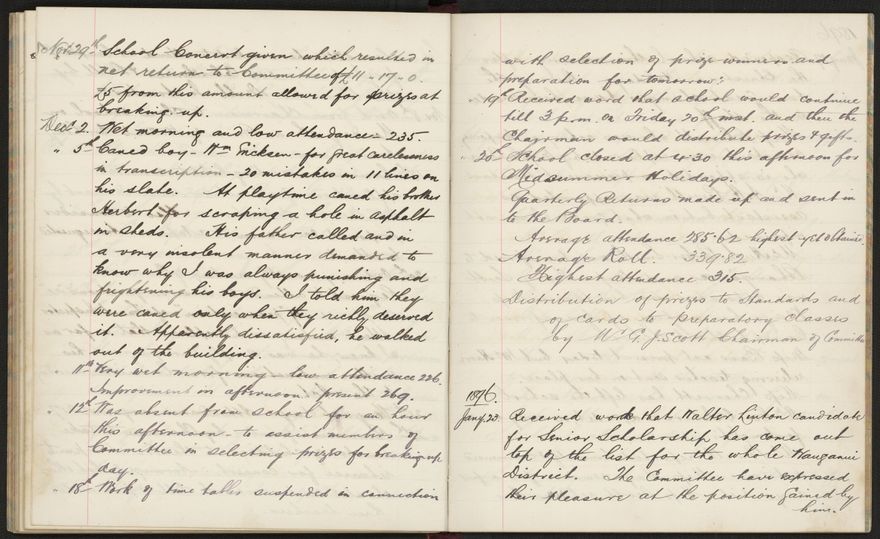 Nov 29th School Concert given which resulted in
net return to Committee of £11 - 17 - 0.
£5 from this amount allowed for prizes at
breaking up.
Decr 2. Wet morning and low attendance - 235.
" 5th Caned boy - Wm Ericksen - for great carelessness
in transcription - 20 mistakes in 11 lines on
his slate. At playtime caned his brother
Herbert for scraping a hole in asphalt
in sheds. His father called and in
a very insolent manner demanded to
know why I was always punishing and
frightening his boys. I told him they
were caned only when they richly deserved
it. Apparently dissatisfied, he walked
out of the building.
11th Very wet morning - low attendance 226.
Improvement in afternoon - present 269.
" 12th Was absent from school for an hour
this afternoon - to assist members of
Committee in selecting prizes for breaking up
day.
" 18th Work of time tables suspended in connection
1896
with selection of prize winners and
preparation for tomorrow.
" 19th Received word that school would continue
till 3 p.m. on Friday 20th inst. and then the
Chairman would distribute prizes & gifts.
" 20th School closed at 4.30 this afternoon for
Midsummer Holidays.
Quarterly Returns made up and sent in
to the Board.
Average attendance 285.62 highest yet obtained
Average Roll. 339.82
Highest attendance 315.
Distribution of prizes to Standards and
of cards to preparatory classes
by Mr G. J. Scott Chairman of Committee
1896.
Jany. 23. Received word that Walter Linton candidate
for Senior Scholarship has come out
top of the list for the whole Wanganui
District. The Committee have expressed
their pleasure at the position gained by
him.